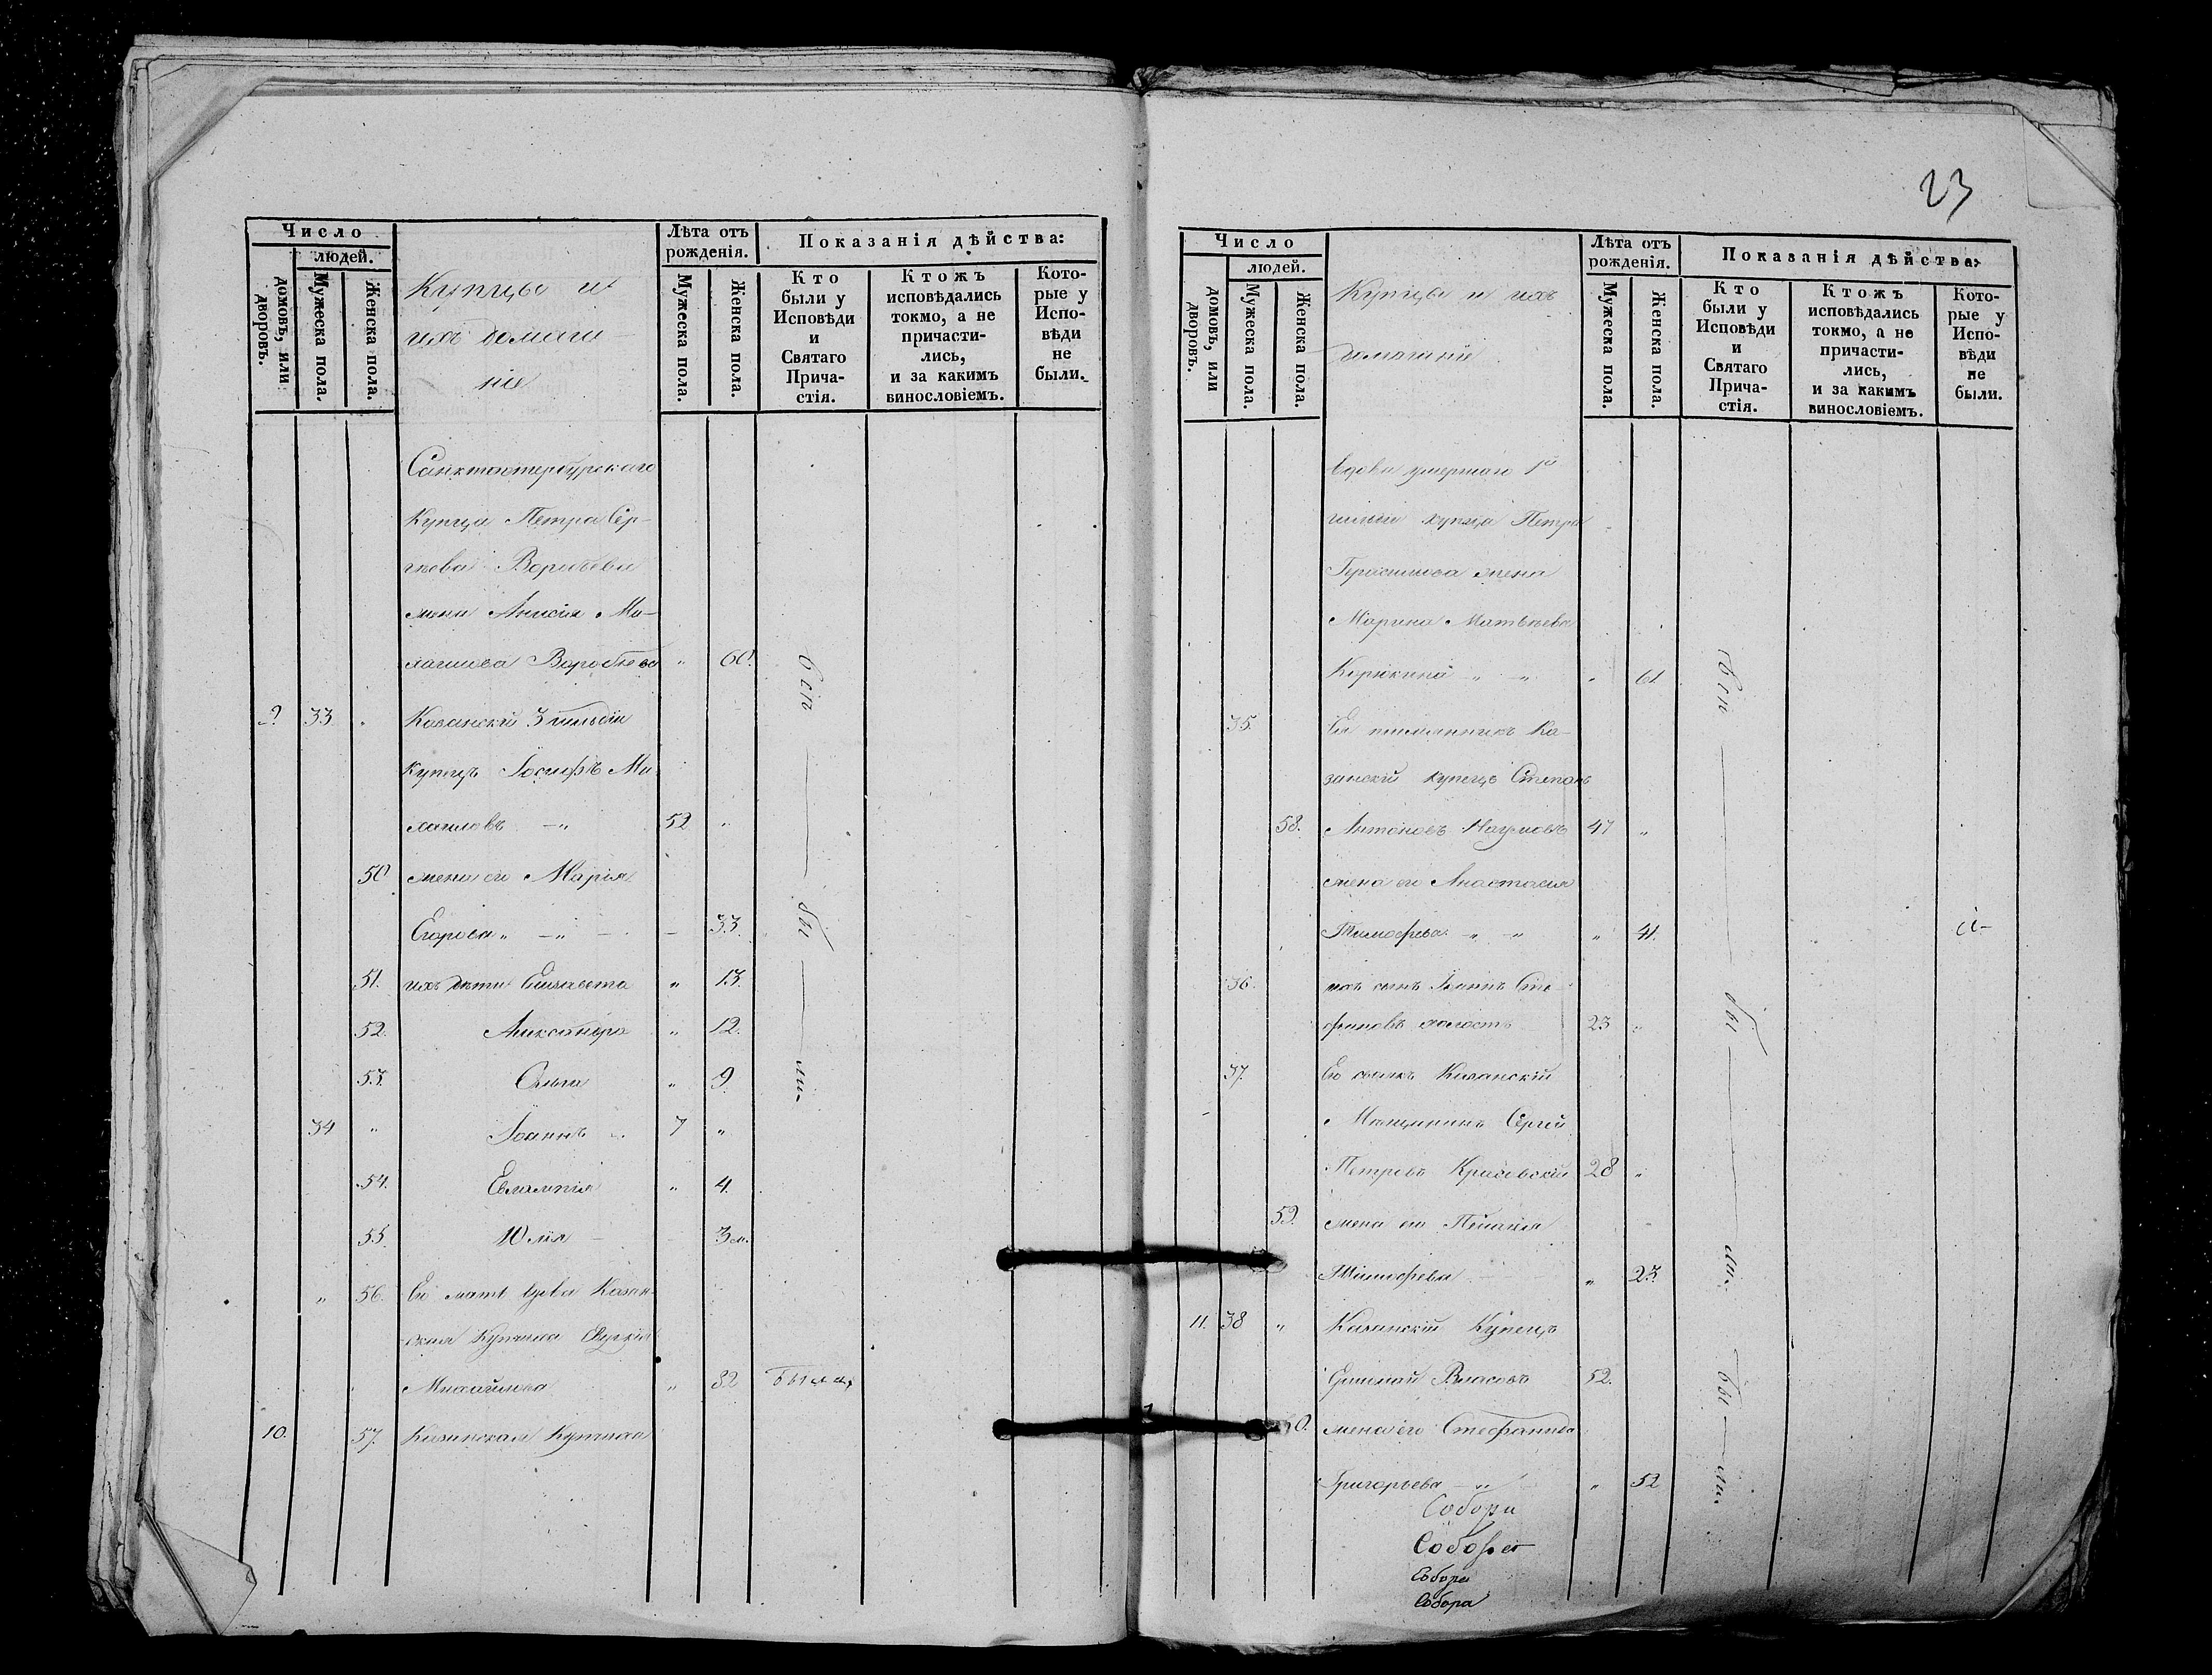 Число
людей.
домовъ, или дворовъ.
Мужеска пола.
Женска пола.
Купцы и
ихъ домаш-
ніе
Лѣта отъ рожденія.
Мужеска пола.
Женска пола.
Показанія дѣйства:
Кто были у Исповѣди и Святаго Прича-стія.
Ктожъ исповѣдались токмо, а не причасти-лись, и за какимъ винословіемъ.
Кото-рые у Испо-вѣди не были.
Санктпетербурскаго
Купца Петра Сер-
гѣева Воробьева
жена Анисія Ми-
хаилова Воробьева " 60.
9 33. " Казанскій 3 гильдіи
Купецъ Іосифъ Ми-
хаиловъ —" 52 "
50 жена его Марія
Егорова " —" — — 33.
51. ихъ дѣти Елизавета " 13.
52. Александра " 12.
53. Ольга " 9.
34 " Іоаннъ 7 "
54. Евлампія " 4.
55. Юлія — 3 м.
" 56. Его мать вдова Казан-
ская Купчиха
Михайлова " 82 была,
10. 57. Казанская Купчиха
вси — бы — ли.
23
Число
людей.
домовъ, или дворовъ.
Мужеска пола.
Женска пола.
Купцы и ихъ
домашніе
Лѣта отъ рожденія.
Мужеска пола.
Женска пола.
Показанія дѣйства:
Кто были у Исповѣди и Святаго Прича-стія.
Ктожъ исповѣдались токмо, а не причасти-лись, и за какимъ винословіемъ.
Кото-рые у Испо-вѣди не были.
вдова умершаго 1й
гильдіи купца Петра
Герасимова жена
Марина Матвѣева
" " " 61.
35. Ея племянникъ Ка-
занскій купецъ Степанъ
58. Антоновъ Наумовъ 47 "
жена его Анастасія
Тимофеева " —" " 41.
36. ихъ сынъ Іоаннъ Сте-
фановъ холостъ 23 "
37. Его Казанскій
Мѣщанинъ Сергѣй
Петровъ 28 "
59. жена его Пелагія
Тимофеева " 23.
11. 38 " Казанскій Купецъ
Ермолай Власовъ 52.
0. жена его Стефанида
Григорьева —" " 52
вси — бы — ли.
бы — ли.
Собора
Собора
Собора
Собора